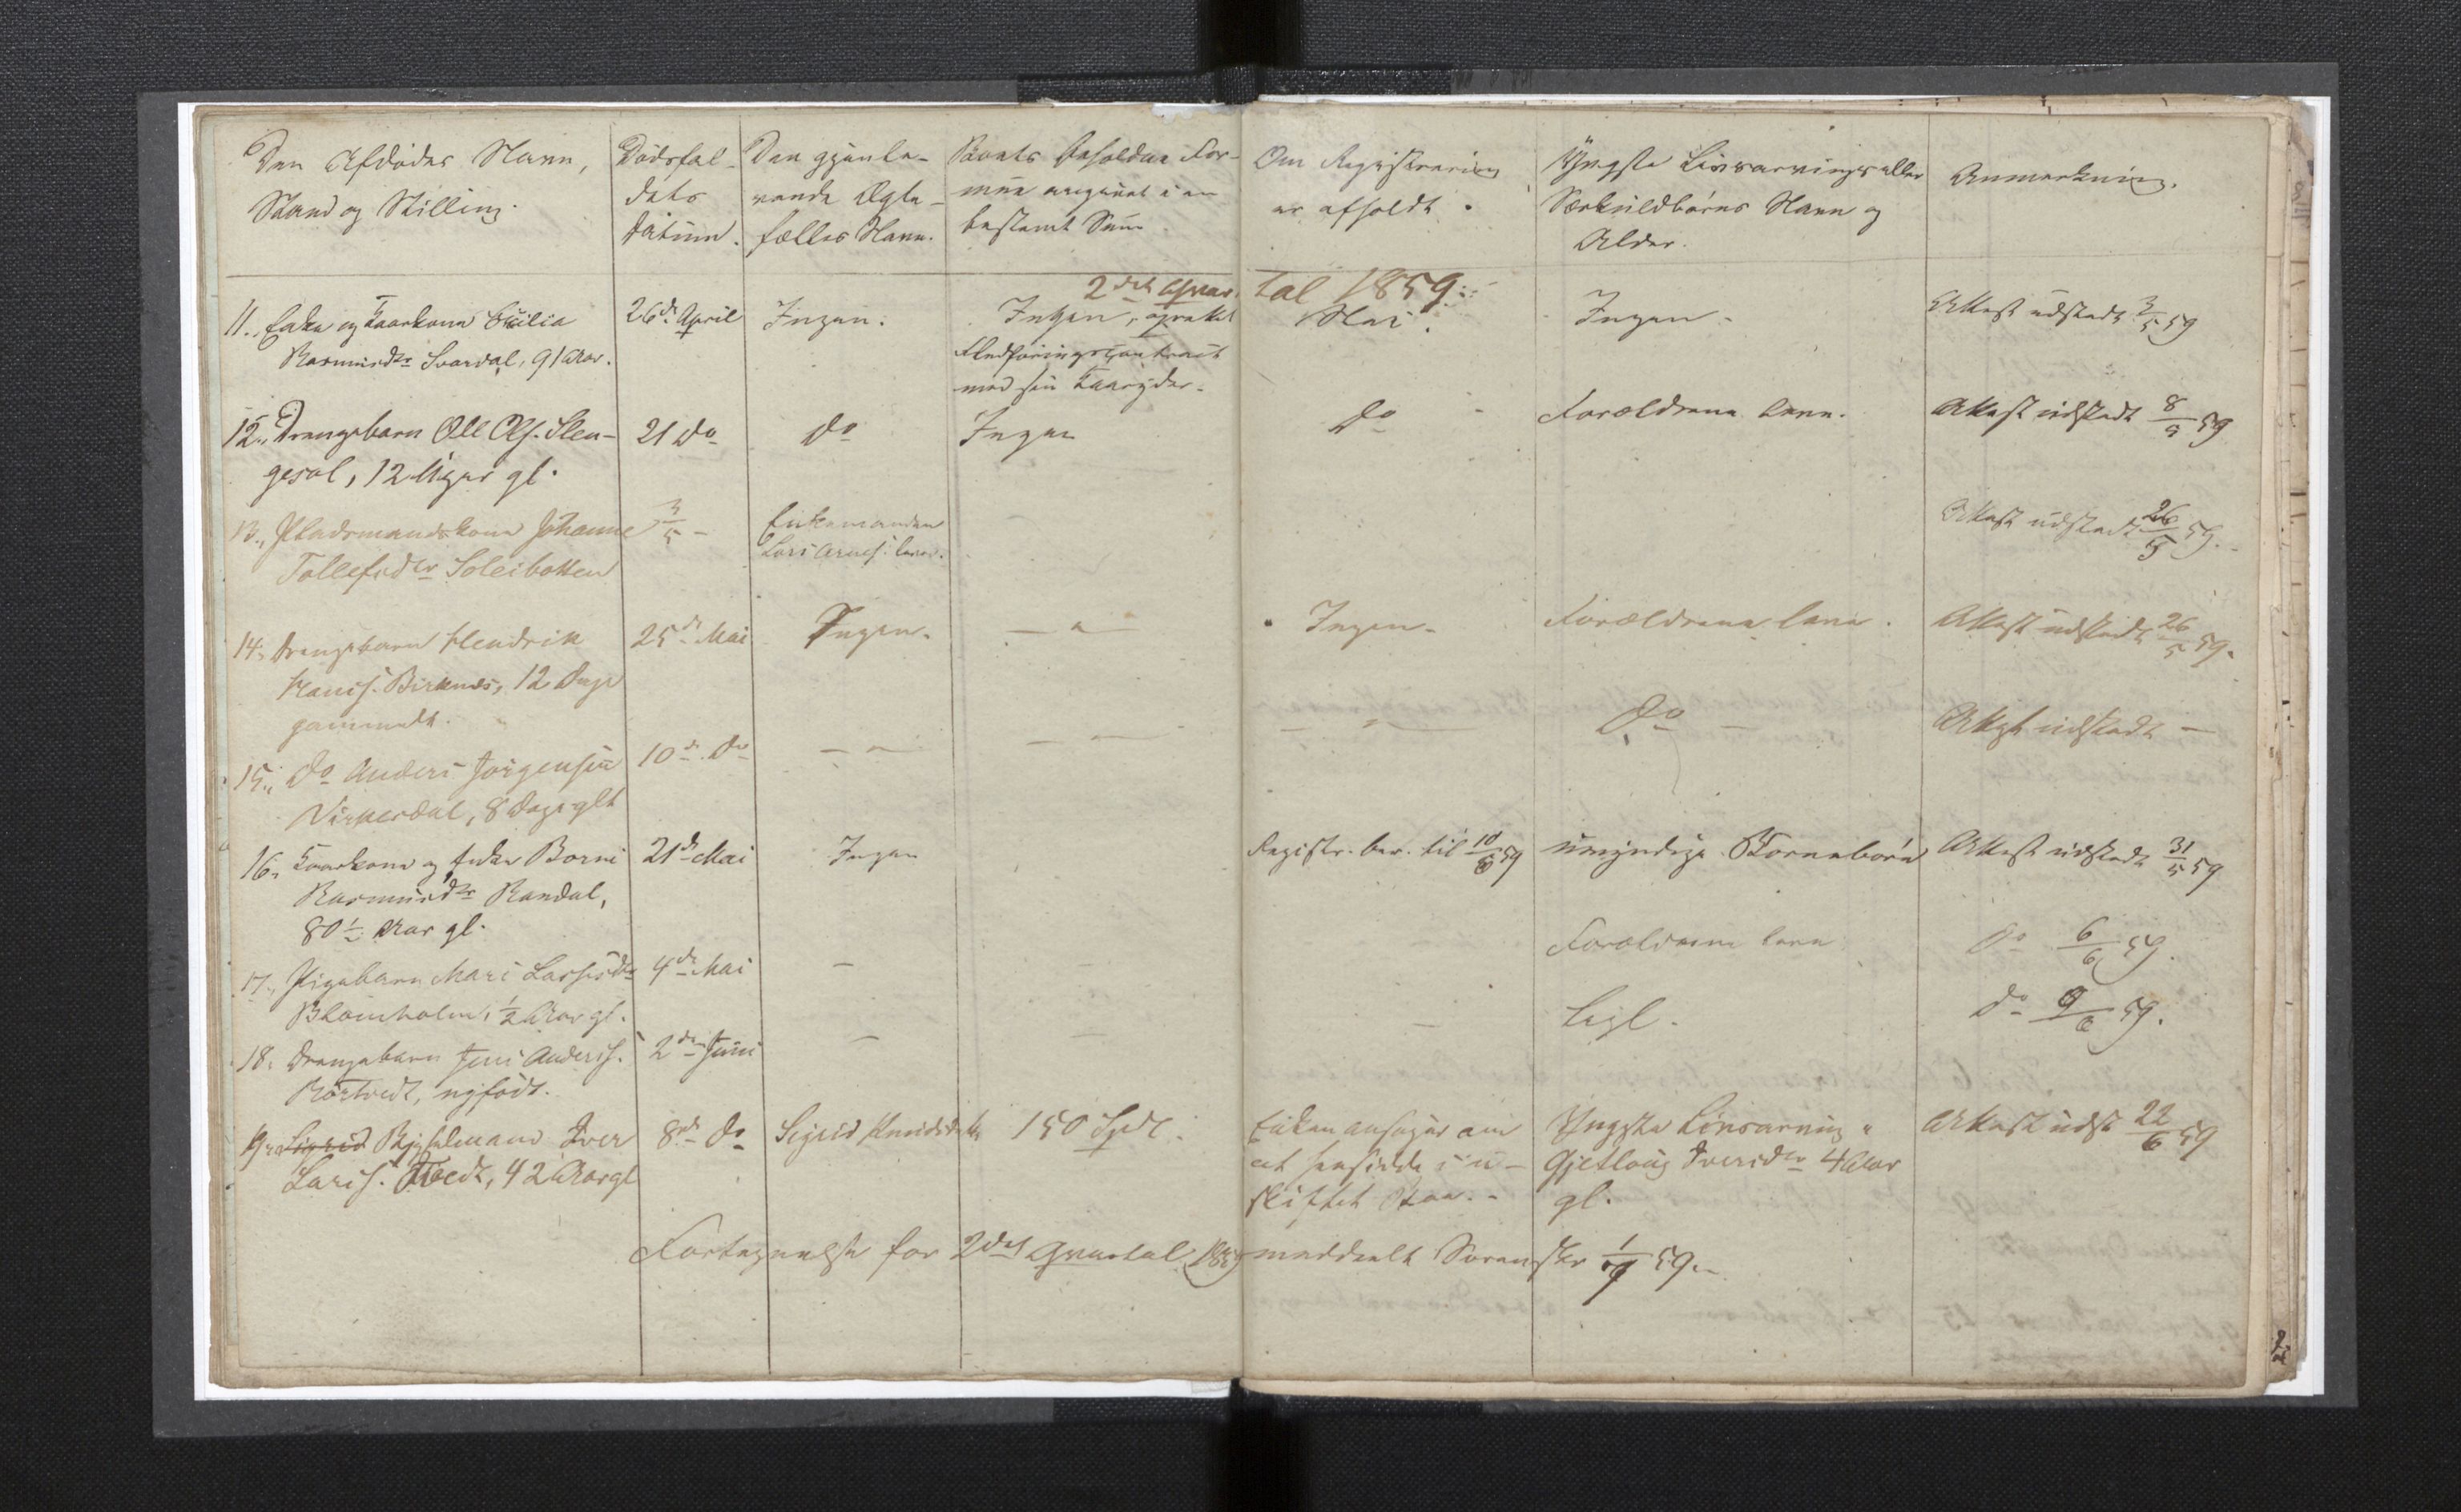 Den Afdödes Navn,
Stand og Stilling.
Dödsfal-
dets
Datum.
Den gjenle-
vende Ægte-
fælles Navn.
Boets beholdne For-
mue angivet i en
bestemt Sum
Om Registrering
er afholdt.
Yngste Livsarvings eller
Særkuldbörns Navn og
Alder.
Anmærkning.
2det Qvar-
tal 1859.
11., Enke og Kaarkone Cicilia
Rasmusdr Svardal, 91 Aar.
26de April
Ingen.
Ingen, oprettet
Fledføringscontract
med sin Kaaryder.
Nei.
Ingen.
Attest udstedt 3/5 59
12., Drengebarn Ole Ols. Slen-
gesol, 12 Uger gl.
21 do
do
Ingen
do
Forældrene leve.
Attest udstedt 8/5 59
13., Pladsmandskone Johanne
Tollefsdr Soleibotten
3/5 -
Enkemanden
Lars Arnes. lever.
Attest udstedt 26/5 59.
14., Drengebarn Hendrik
Hans. Birknes, 12 Dage
gammelt.
25de Mai
Ingen.
— " —
Ingen.
Forældrene leve.
Attest udstedt 26/5 59.
15., do Anders Jörgensen
Virkesdal, 8 Dage glt
10de do
— " —
— " —
— " —
do —
Attest udstedt —
16., Kaarkone og Enke Borni
Rasmusdr Randal,
80½ Aar gl.
21de Mai
Ingen
Registr. ber. til 10/6 59
umyndige Börnebörn
Attest udstedt 31/5 59
17., Pigebarn Mari Lassesdr
Blomholm, ½ Aar gl.
4de Mai
—
—
Forældrene leve
do 6/6 59.
18., Drengebarn Jens Anders.
Rörtvedt, nyfödt.
2den Juni
—
—
—
Ligl.
do 9/6 59.
19., Sigrid Bygselmand Iver
Lars. Tvedt, 42 Aar gl
8de do
Sigrid Knudsdatter
150 Spdl.
Enken ansöger om
at hensidde i u-
skiftet Boe. -
Yngste Livsarving "
Gjetloug Iversdr 4 Aar
gl.
Attest udst 22/6 59
Fortegnelse for 2det Qvartal 1859 meddeelt Sorenskr 1/7 59.-